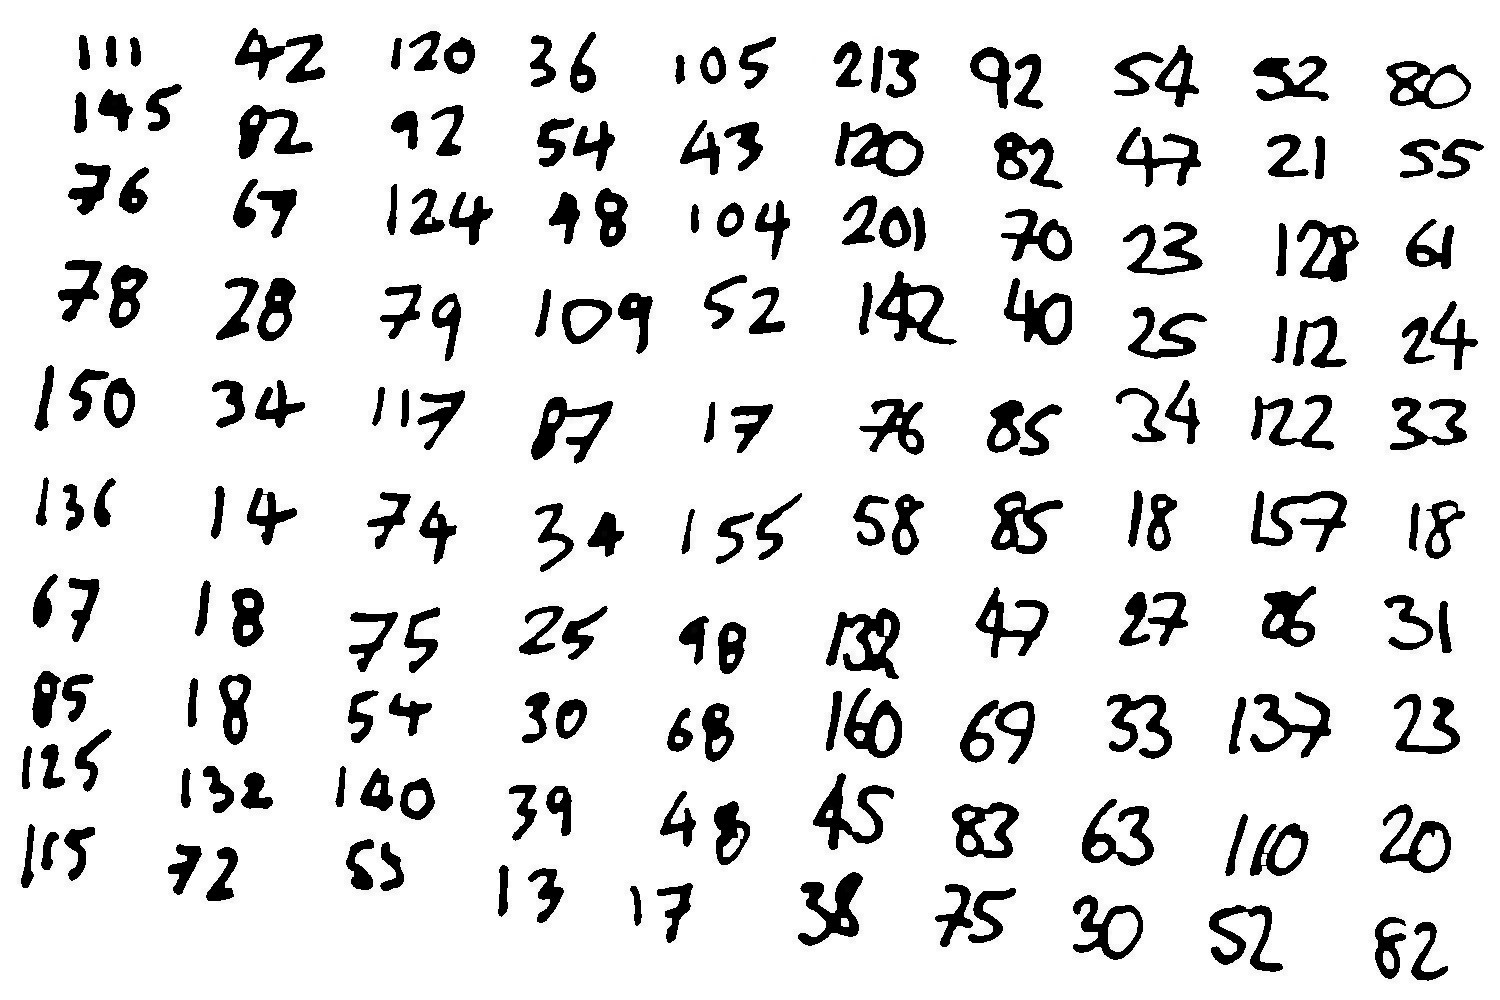 111 42 120 36 105 213 92 54 52 80
145 82 92 54 43 120 82 47 21 55
76 67 124 48 104 201 70 23 128 61
78 28 79 109 52 142 40 25 112 24
150 34 117 87 17 76 85 34 122 33
136 14 74 34 155 58 85 18 157 18
67 18 75 25 98 132 47 27 86 31
85 18 54 30 68 160 69 33 137 23
125 132 140 39 48 45 83 63 110 20
115 72 55 13 17 38 75 30 52 82